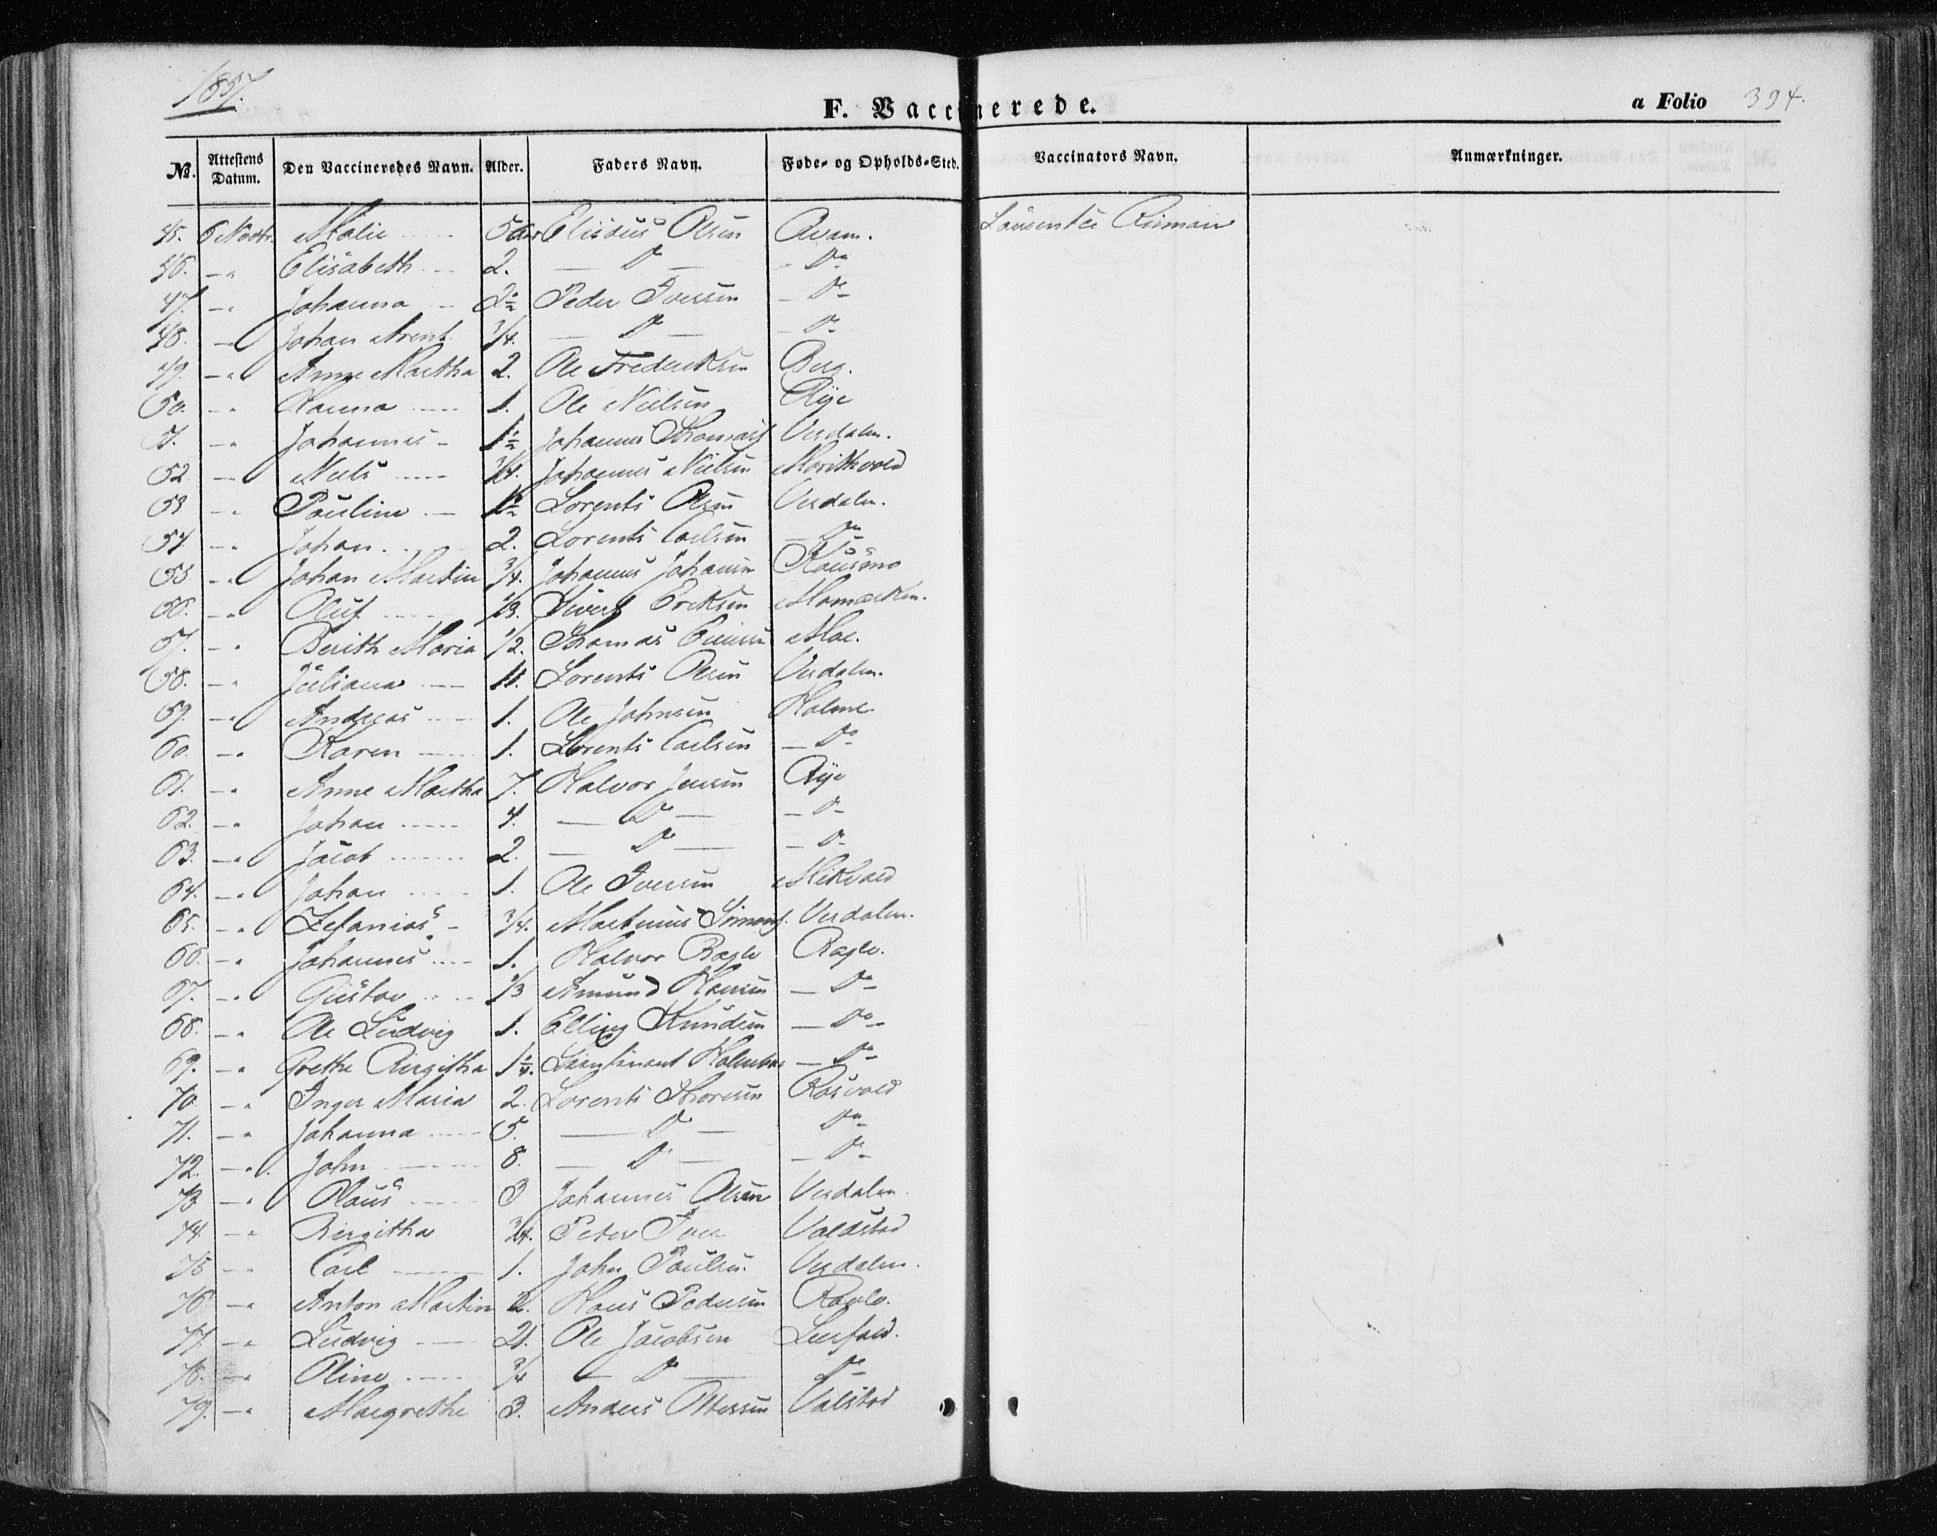 1857.
F. Vaccinerede.
a Folio 394.
No. Attestens Datum. Den Vaccineredes Navn. Alder. Faders Navn. Føde- og Opholds-Sted. Vaccinators Navn. Anmærkninger.
45. 6 Novbr. Malie 5 Elisæus Olsen
46. -" Elisabeth 2. — Do — — Do
47. -" Johanna 2½ Peder Iversen — Do —
48. -" Johan Arent 3/4. — Do — — Do
49. -" Anne Martha 2. Ole Frederiksen Berg.
50. -" Hanna 1. Ole Nielsen Rye
51. -" Johannes 1½ Johannes Thomas Verdalen.
52 -" Niels 3/4. Johannes Nielsen
53 -" Pauline 1½ Lorents Olsen Verdalen.
54. -" Johan 2. Lorents Carlsen Do
55 -" Johan Martin 3/4. Johannes Johansen
56. -" Oluf 1/3. Sivert Eriksen Momarken.
57. -" Berith Maria 1/2. Thomas Moe.
58. -" Juliana 11. Lorents Olsen Verdalen.
59. -" Andreas 1. Ole Johnsen Holme
60. -" Karen 1. Lorents Carlsen — Do
61. -" Anne Martha 7. Halvor Jensen Rye
62. -" Johan 4. — Do — — Do —
63. -" Jacob 2. — Do — — Do
64. -" Johan 1. Ole Iversen Mikvold
65. -" Zefanias 3/4. Martinus Simons. Verdalen.
66. -" Johannes 1. Halvor Raglo Raglo.
67. -" Gustav 1/3 Amund Hansen — Do —
68. -" Ole Ludvig 1. Elling Knudsen — Do —
69. -" Grethe Birgitha 1¼. — Do —
70. -" Inger Maria 2. Lorents Thoresen Rosvold
71. -" Johanna 5. — Do — Do
72. -" John 8. — Do — — Do —
73 -" Claus 3 Johannes Olsen Verdalen.
74. -" Birgitha 3/4. Peter Iver Valdstad
75 -" Carl 1. John Paulsen Verdalen.
76. -" Anton Martin 2. Hans Pedersen Raglo.
77. -" Ludvig 2½. Ole Jacobsen Leerfald.
78. -" Oline 3/4 — Do — Do
79. -" Margrethe 3. Anders Ottersen Valstad